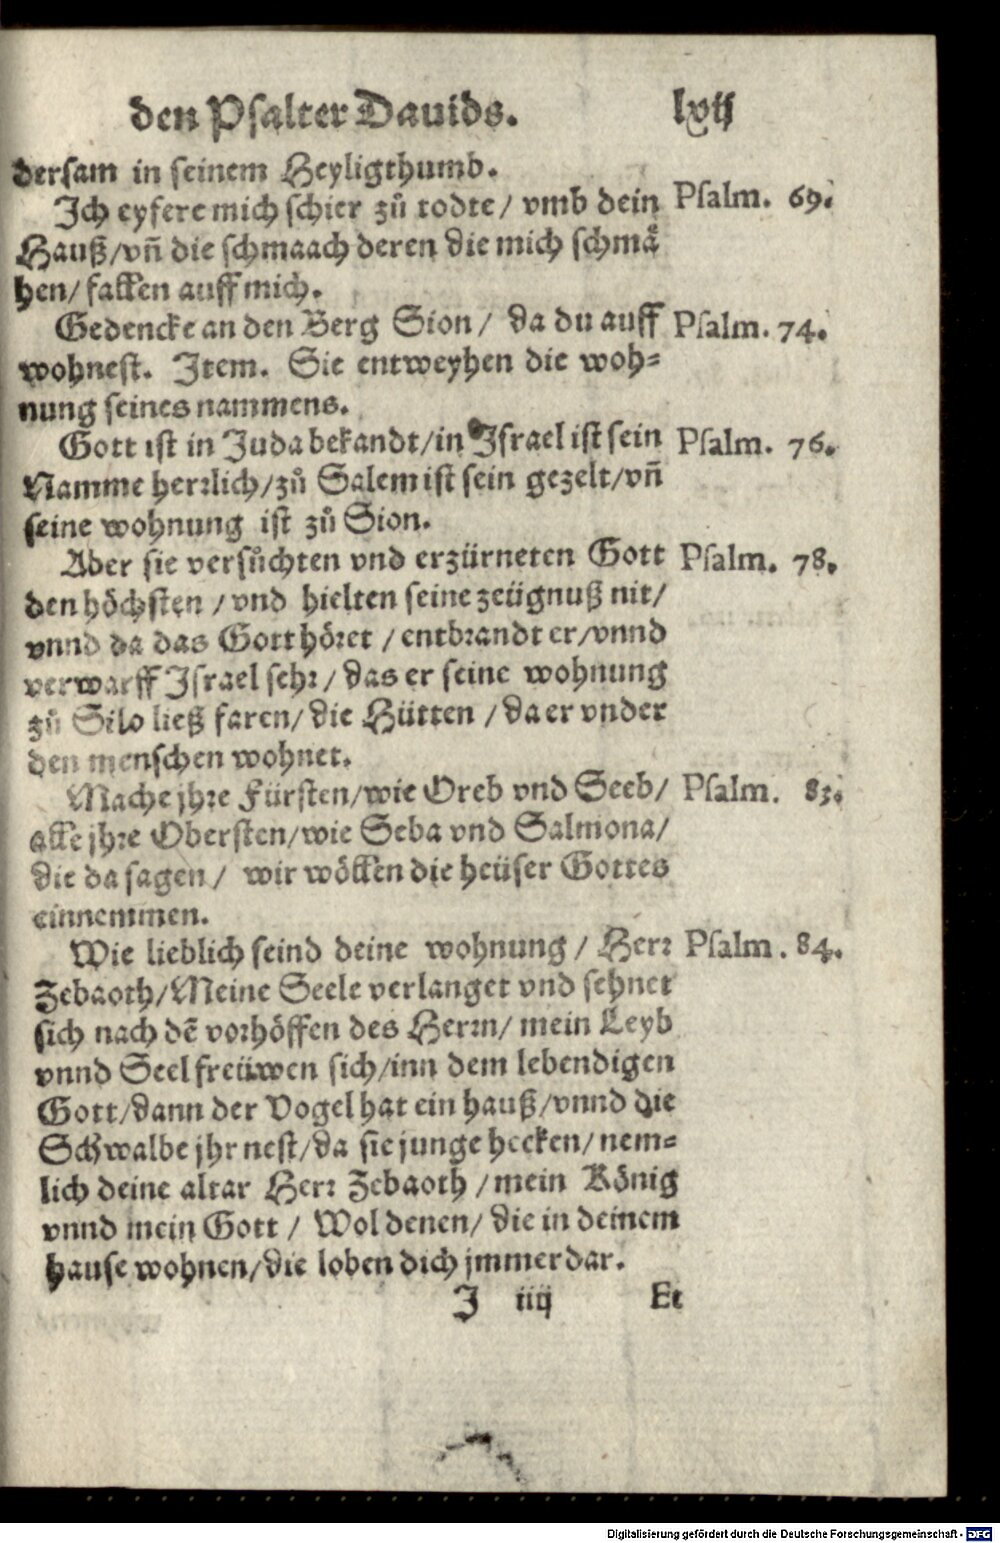 den Psalter Dauids. lxvij
dersam in seinem Heyligthumb.
Ich eyfere mich schier zů todte / vmb dein Psalm. 69.
Hauß / vñ die schmaach deren die mich schmä
hen / fallen auff mich.
Gedencke an den Berg Sion / da du auff Psalm. 74.
wohnest. Item. Sie entweyhen die woh⸗
nung seines nammens.
Gott ist in Juda bekandt / in Israel ist sein Psalm. 76.
Namme herꝛlich / zů Salem ist sein gezelt / vñ
seine wohnung ist zů Sion.
Aber sie versůchten vnd erzürneten Gott Psalm. 78.
den höchsten / vnd hielten seine zeügnuß nit /
vnnd da das Gott höret / entbꝛandt er / vnnd
verwarff Israel sehꝛ / das er seine wohnung
zů Silo ließ faren / die Hütten / da er vnder
den menschen wohnet.
Mache jhꝛe Fürsten / wie Oreb vnd Seeb / Psalm. 83.
alle jhꝛe Obersten / wie Seba vnd Salmona /
die da sagen / wir wöllen die heüser Gottes
einnemmen.
Wie lieblich seind deine wohnung / Herꝛ Psalm. 84.
Zebaoth / Meine Seele verlanget vnd sehnet
sich nach dẽ voꝛhöffen des Herꝛn / mein Leyb
vnnd Seel freüwen sich / inn dem lebendigen
Gott / dann der Vogel hat ein hauß / vnnd die
Schwalbe jhr nest / da sie junge hecken / nem⸗
lich deine altar Herꝛ Zebaoth / mein König
vnnd mein Gott / Wol denen / die in deinem
hause wohnen / die loben dich jmmerdar.
J iiij Et
Digitalisierung gefördert durch die Deutsche Forschungsgemeinschaft - DFG